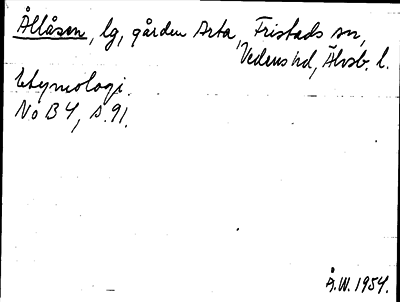 Ållåsen, lg, gården Arta, Fristads sn,
Vedens hd, Älvsb. l.
Etymologi.
No B 4, s. 91.
Å.W. 1954.